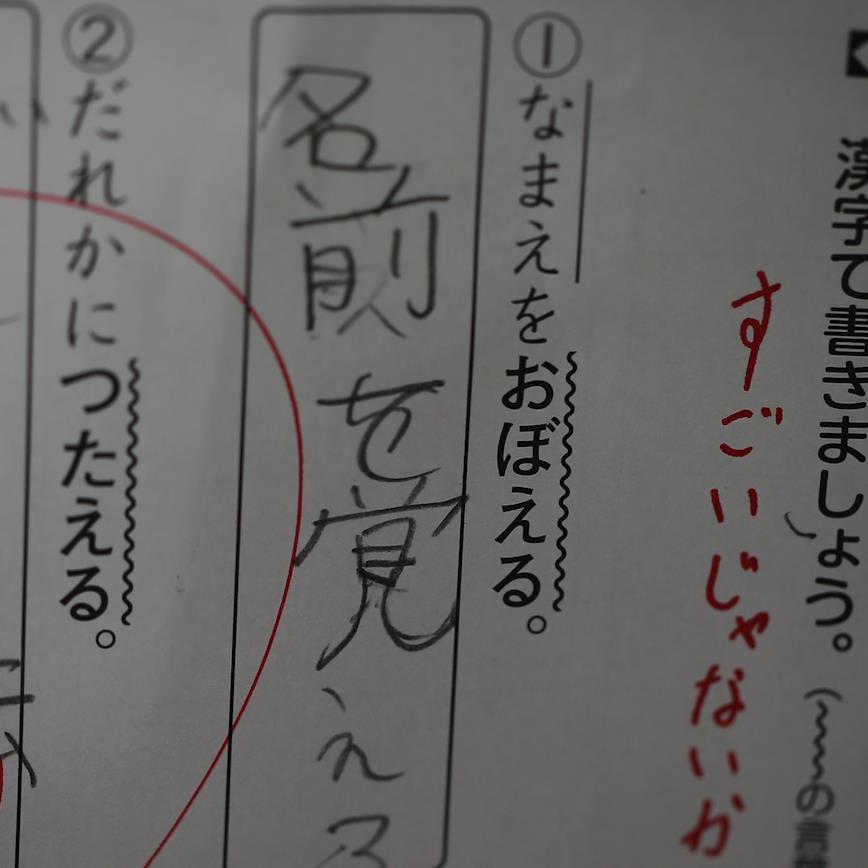 漢字で書きましょう。(〰の言
すごいじゃないか
①なまえをおぼえる。
名前を覚える
②だれかにつたえる。